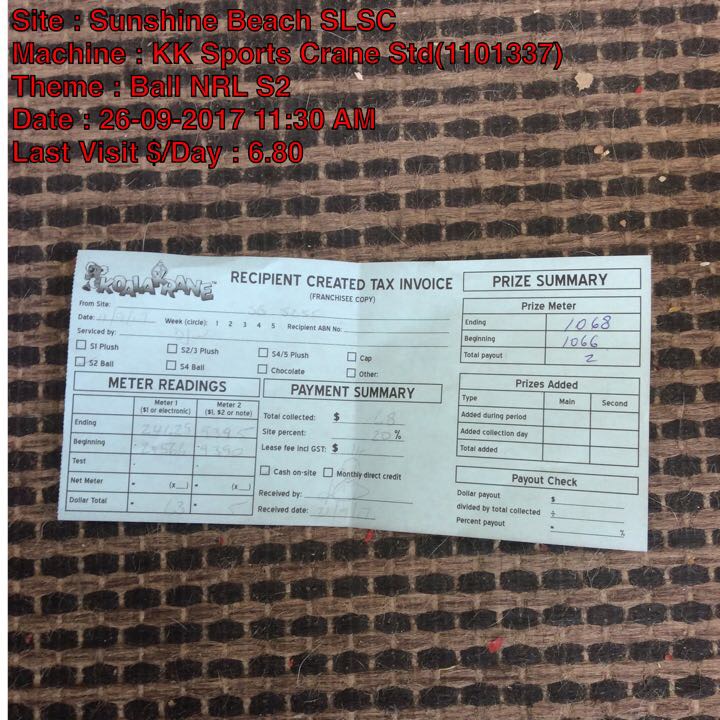 Site : Sunshine Beach SLSC
Machine : KK Sports Crane Std(1101337)
Theme : Ball NRL S2
Date : 26-09-2017 11:30 AM
Last Visit $/Day : 6.80
KOALA KRANE
RECIPIENT CREATED TAX INVOICE
(FRANCHISEE COPY)
From Site: SS SLSC
Date:
Week (circle): 1 2 3 4 5 Recipient ABN No:
Serviced by:
S1 Plush S2/3 Plush S4/5 Plush Cap
S2 Ball S4 Ball Chocolate Other:
METER READINGS
Meter 1 Meter 2
($1 or electronic) ($1, $2 or note)
Ending
Beginning
Test - -
Net Meter = (x__) = (x__)
Dollar Total = 13 = 5
PAYMENT SUMMARY
Total collected: $ 18
Site percent: 20 %
Lease fee incl GST: $
Cash on-site Monthly direct credit
Received by:
Received date:
PRIZE SUMMARY
Prize Meter
Ending 1068
Beginning 1066
Total payout 2
Prizes Added
Type Main Second
Added during period
Added collection day
Total added
Payout Check
Dollar payout $
divided by total collected ÷
Percent payout = %